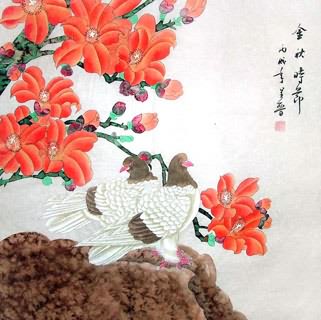 金秋時節
丙戌年